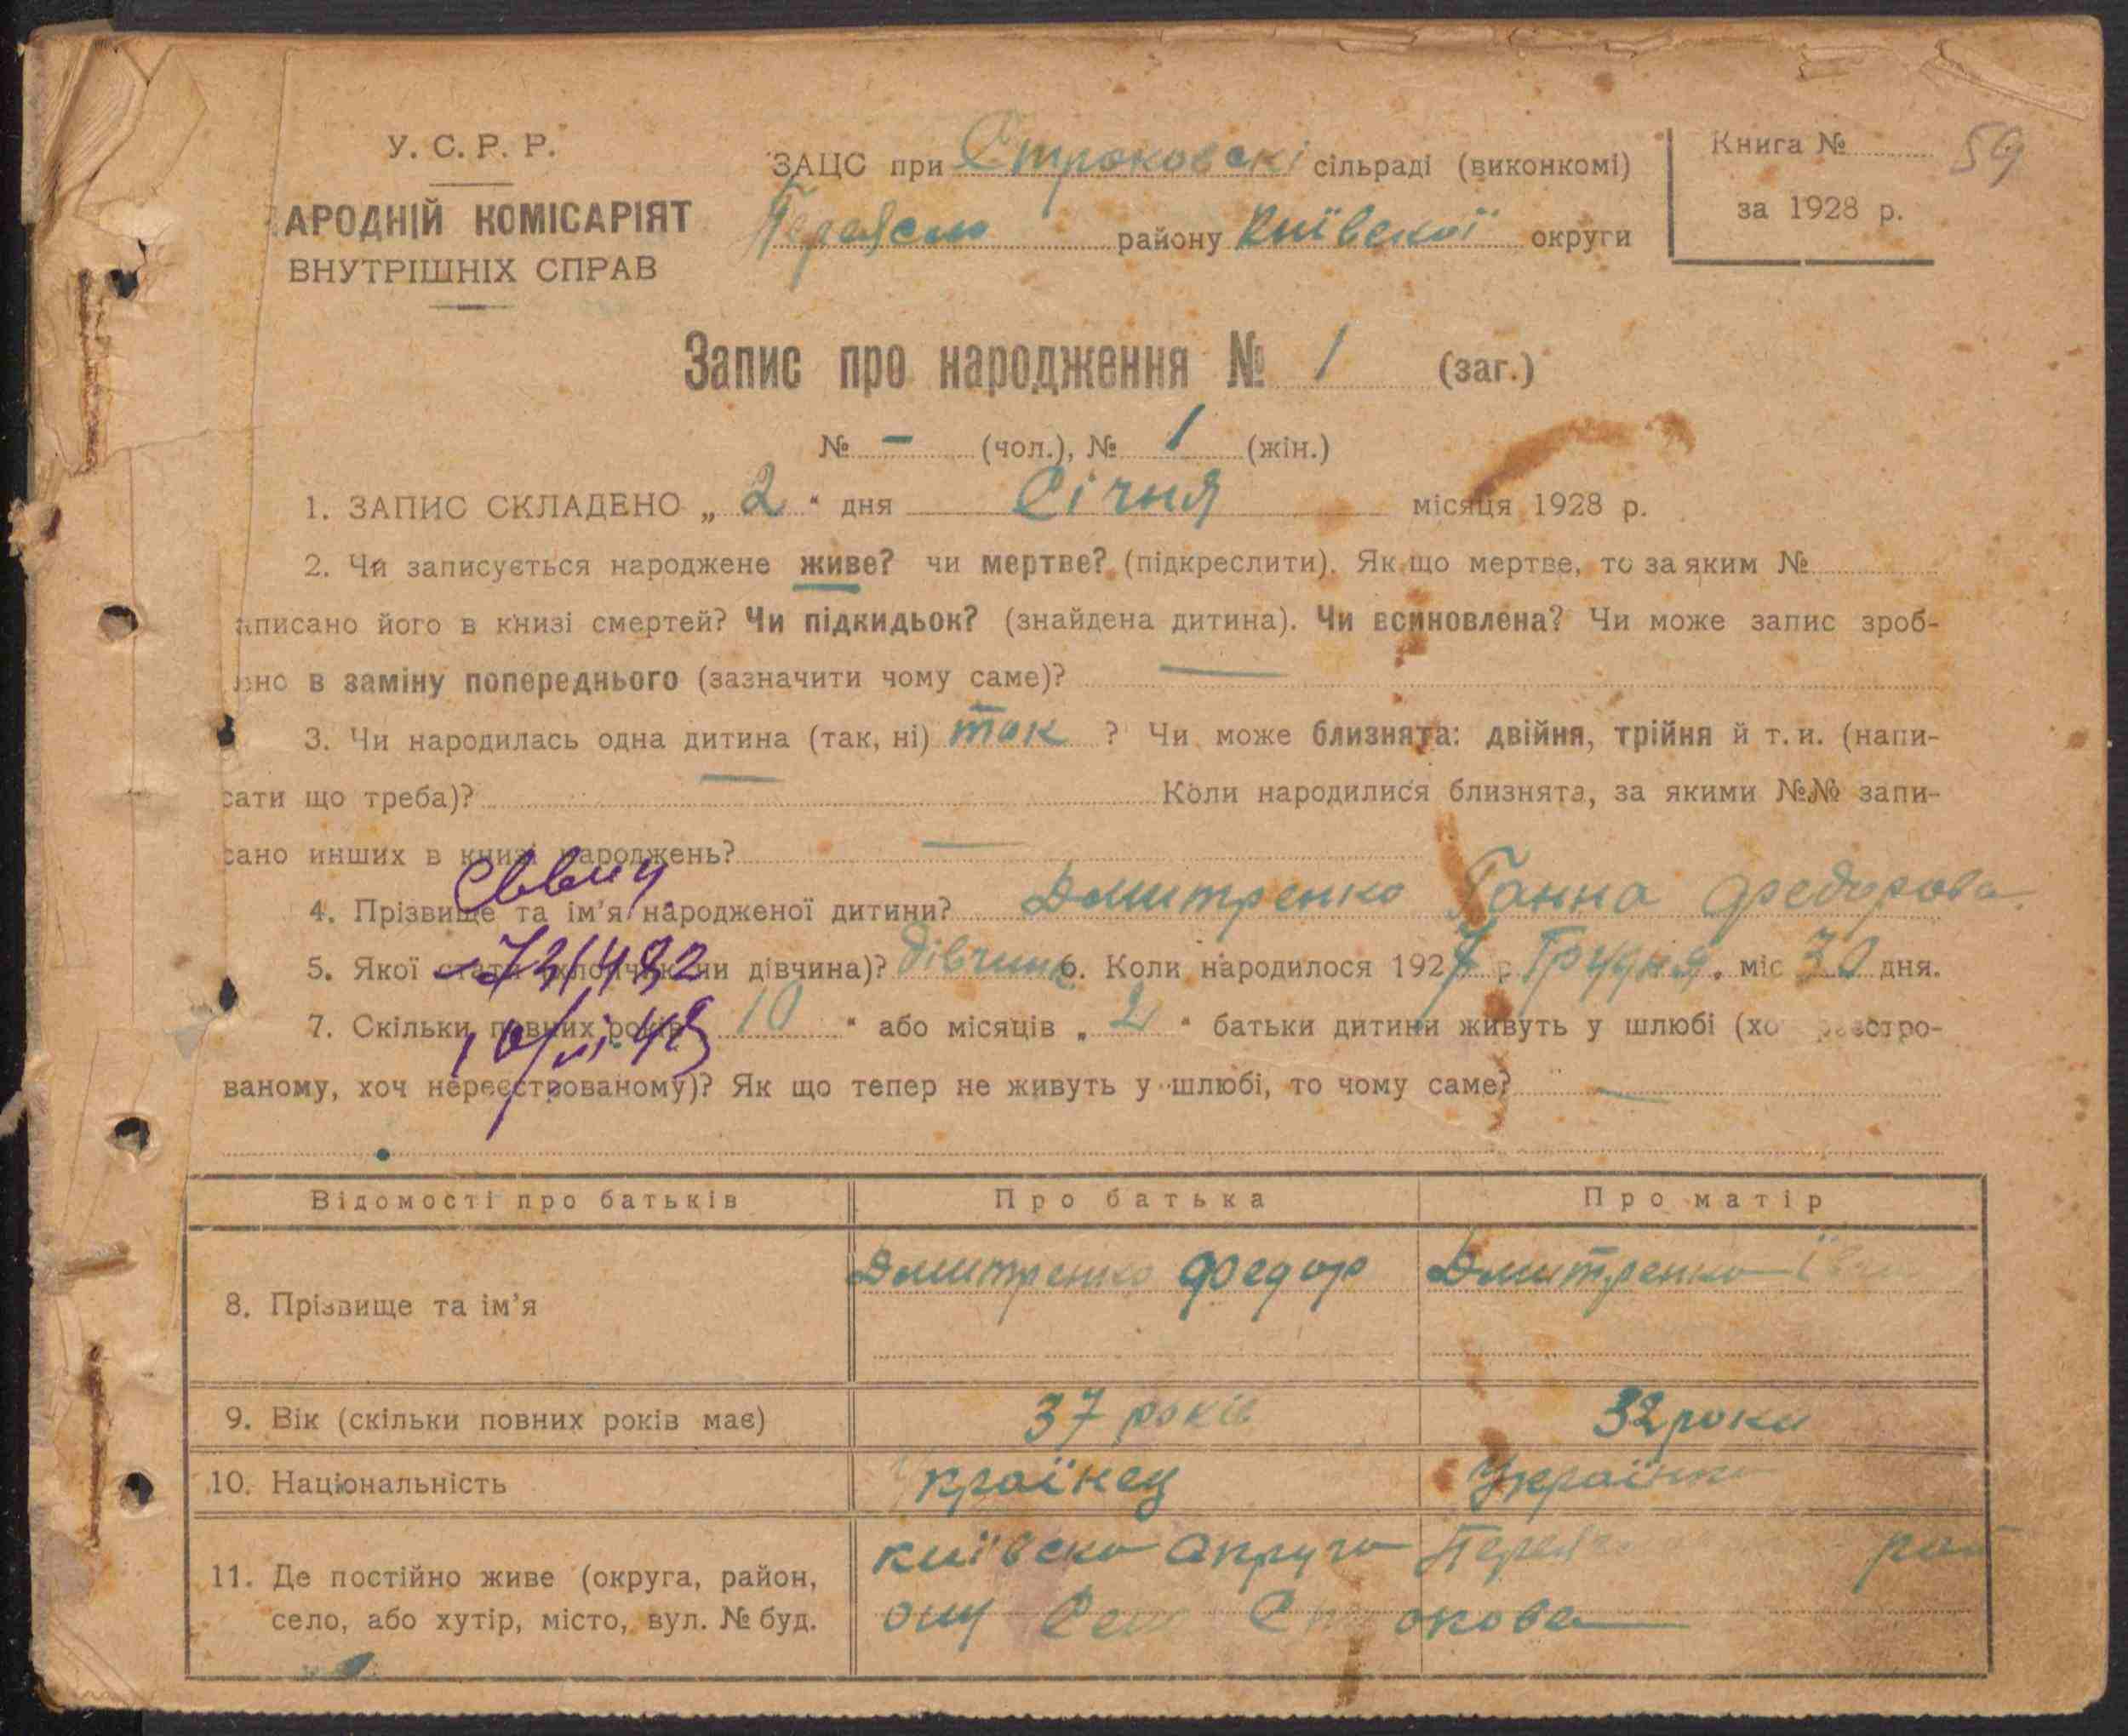 У. С. Р. Р.
АРОДНІЙ КОМІСАРІЯТ
ВНУТРІШНІХ СПРАВ
ЗАЦС при Строковскі сільраді (виконкомі)
району Київської округи
Книга № 59
за 1928 р.
Запис про народження № 1 (заг.)
№ - (чол.), № 1 (жін.)
1. ЗАПИС СКЛАДЕНО „ 2 “ дня Січня місяця 1928 р.
2. Чи записується народжене живе? чи мертве? (підкреслити). Як що мертве, то за яким №
аписано його в книзі смертей? Чи підкидьок? (знайдена дитина). Чи всиновлена? Чи може запис зроб-
ено в заміну попереднього (зазначити чому саме)? —
3. Чи народилась одна дитина (так, ні) так ? Чи може близнята: двійня, трійня й т. и. (напи-
сати що треба)? — Коли народилися близнята, за якими №№ запи-
сано инших в книзі народжень? —
4. Прізвище та ім’я народженої дитини? Дмитренко Ганна Федорова
5. Якої стати (хлопчик чи дівчина)? дівчина 6. Коли народилося 1927 р. Грудня міс 30 дня.
7. Скільки повних років 10 “ або місяців „ 2 “ батьки дитини живуть у шлюбі (хо реєстро-
ваному, хоч нереєстрованому)? Як що тепер не живуть у шлюбі, то чому саме? —
Відомості про батьків Про батька Про матір
8. Прізвище та ім’я Дмитренко Федор Дмитренко
9. Вік (скільки повних років має) 37 років 32 роки
10. Національність країнец Українка
11. Де постійно живе (округа, район,
село, або хутір, місто, вул. № буд.
київско округо